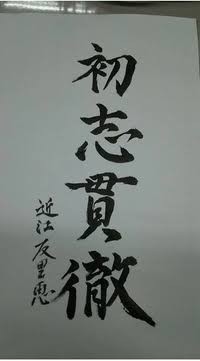 初志貫徹
近江友里恵